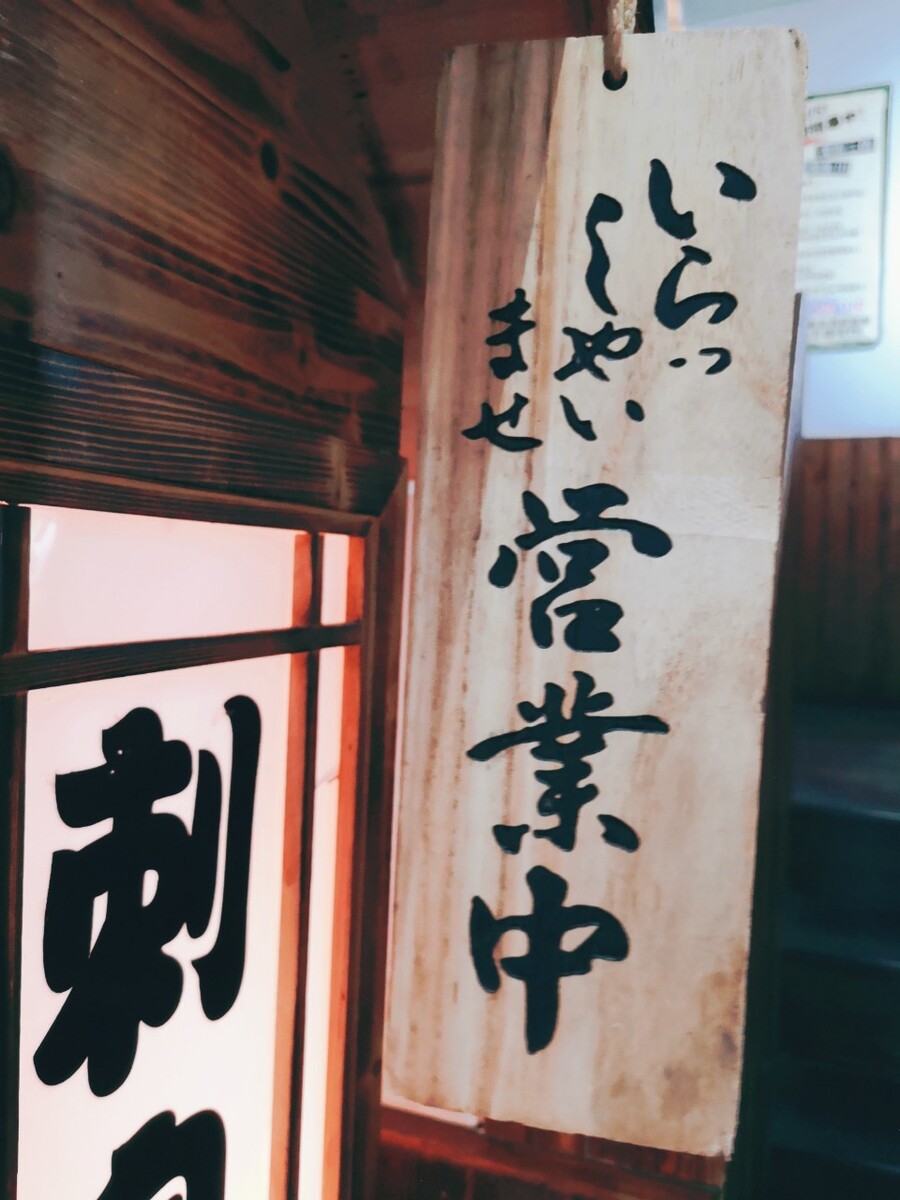 いらっ
しゃい
ませ
営業中
刺